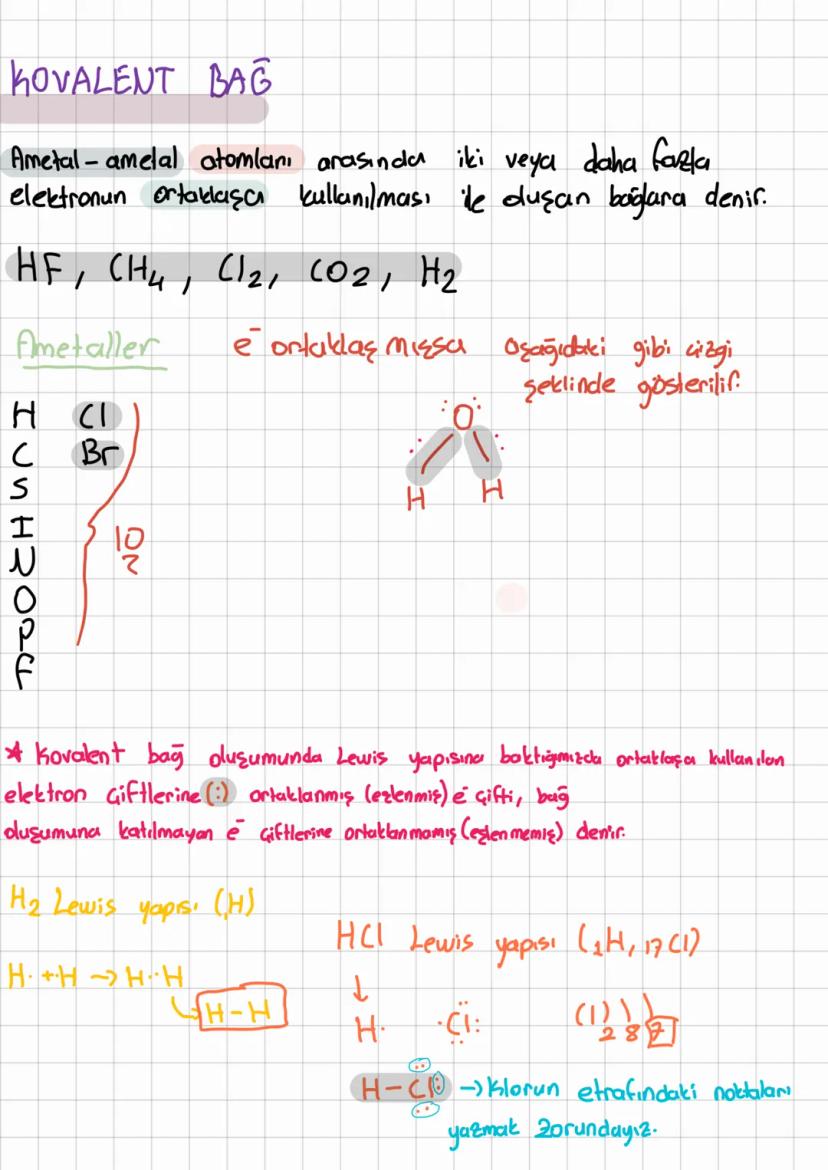 KOVALENT BAĞ
Ametal-ametal atomları arasında iki veya daha fazla
elektronun ortaklaşa kullanılması ile oluşan bağlara denir.
HF, CH4, Cl2, CO2, H2
Ametaller
e⁻ ortaklaşmışsa aşağıdaki gibi çizgi
şeklinde gösterilir.
H Cl
C Br
S
I
N
O
P
F
10
?
:O:
H H
* Kovalent bağ oluşumunda Lewis yapısına baktığımızda ortaklaşa kullanılan
elektron çiftlerine (:) ortaklanmış (eşlenmiş) e⁻ çifti, bağ
oluşumuna katılmayan e⁻ çiftlerine ortaklanmamış (eşlenmemiş) denir.
H2 Lewis yapısı (₁H)
H· + ·H → H··H
H-H
HCl Lewis yapısı (₁H, ₁₇Cl)
↓
H· ·Cl:
2 8 7
H-Cl: → Klorun etrafındaki noktaları
yazmak zorundayız.